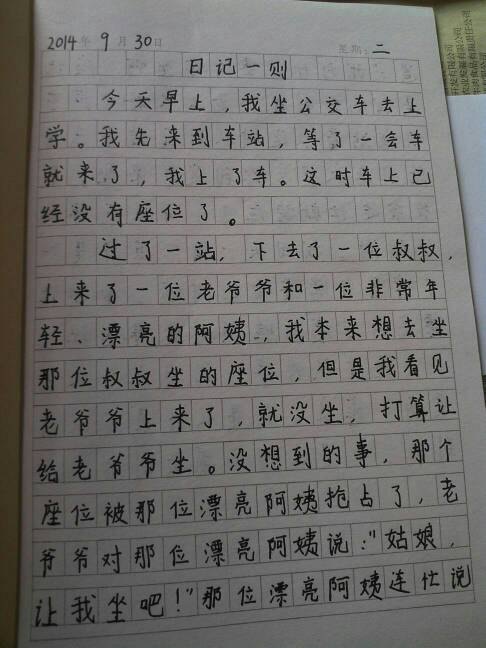 2014年9月30日 星期:二
日记一则
今天早上，我坐公交车去上
学。我先来到车站，等了一会车
就来了，我上了车。这时车上已
经没有座位了。
过了一站，下去了一位叔叔，
上来了一位老爷爷和一位非常年
轻、漂亮的阿姨，我本来想去坐
那位叔叔坐的座位，但是我看见
老爷爷上来了，就没坐，打算让
给老爷爷坐。没想到的事，那个
座位被那位漂亮阿姨抢占了，老
爷爷对那位漂亮阿姨说："姑娘，
让我坐吧！"那位漂亮阿姨连仕说